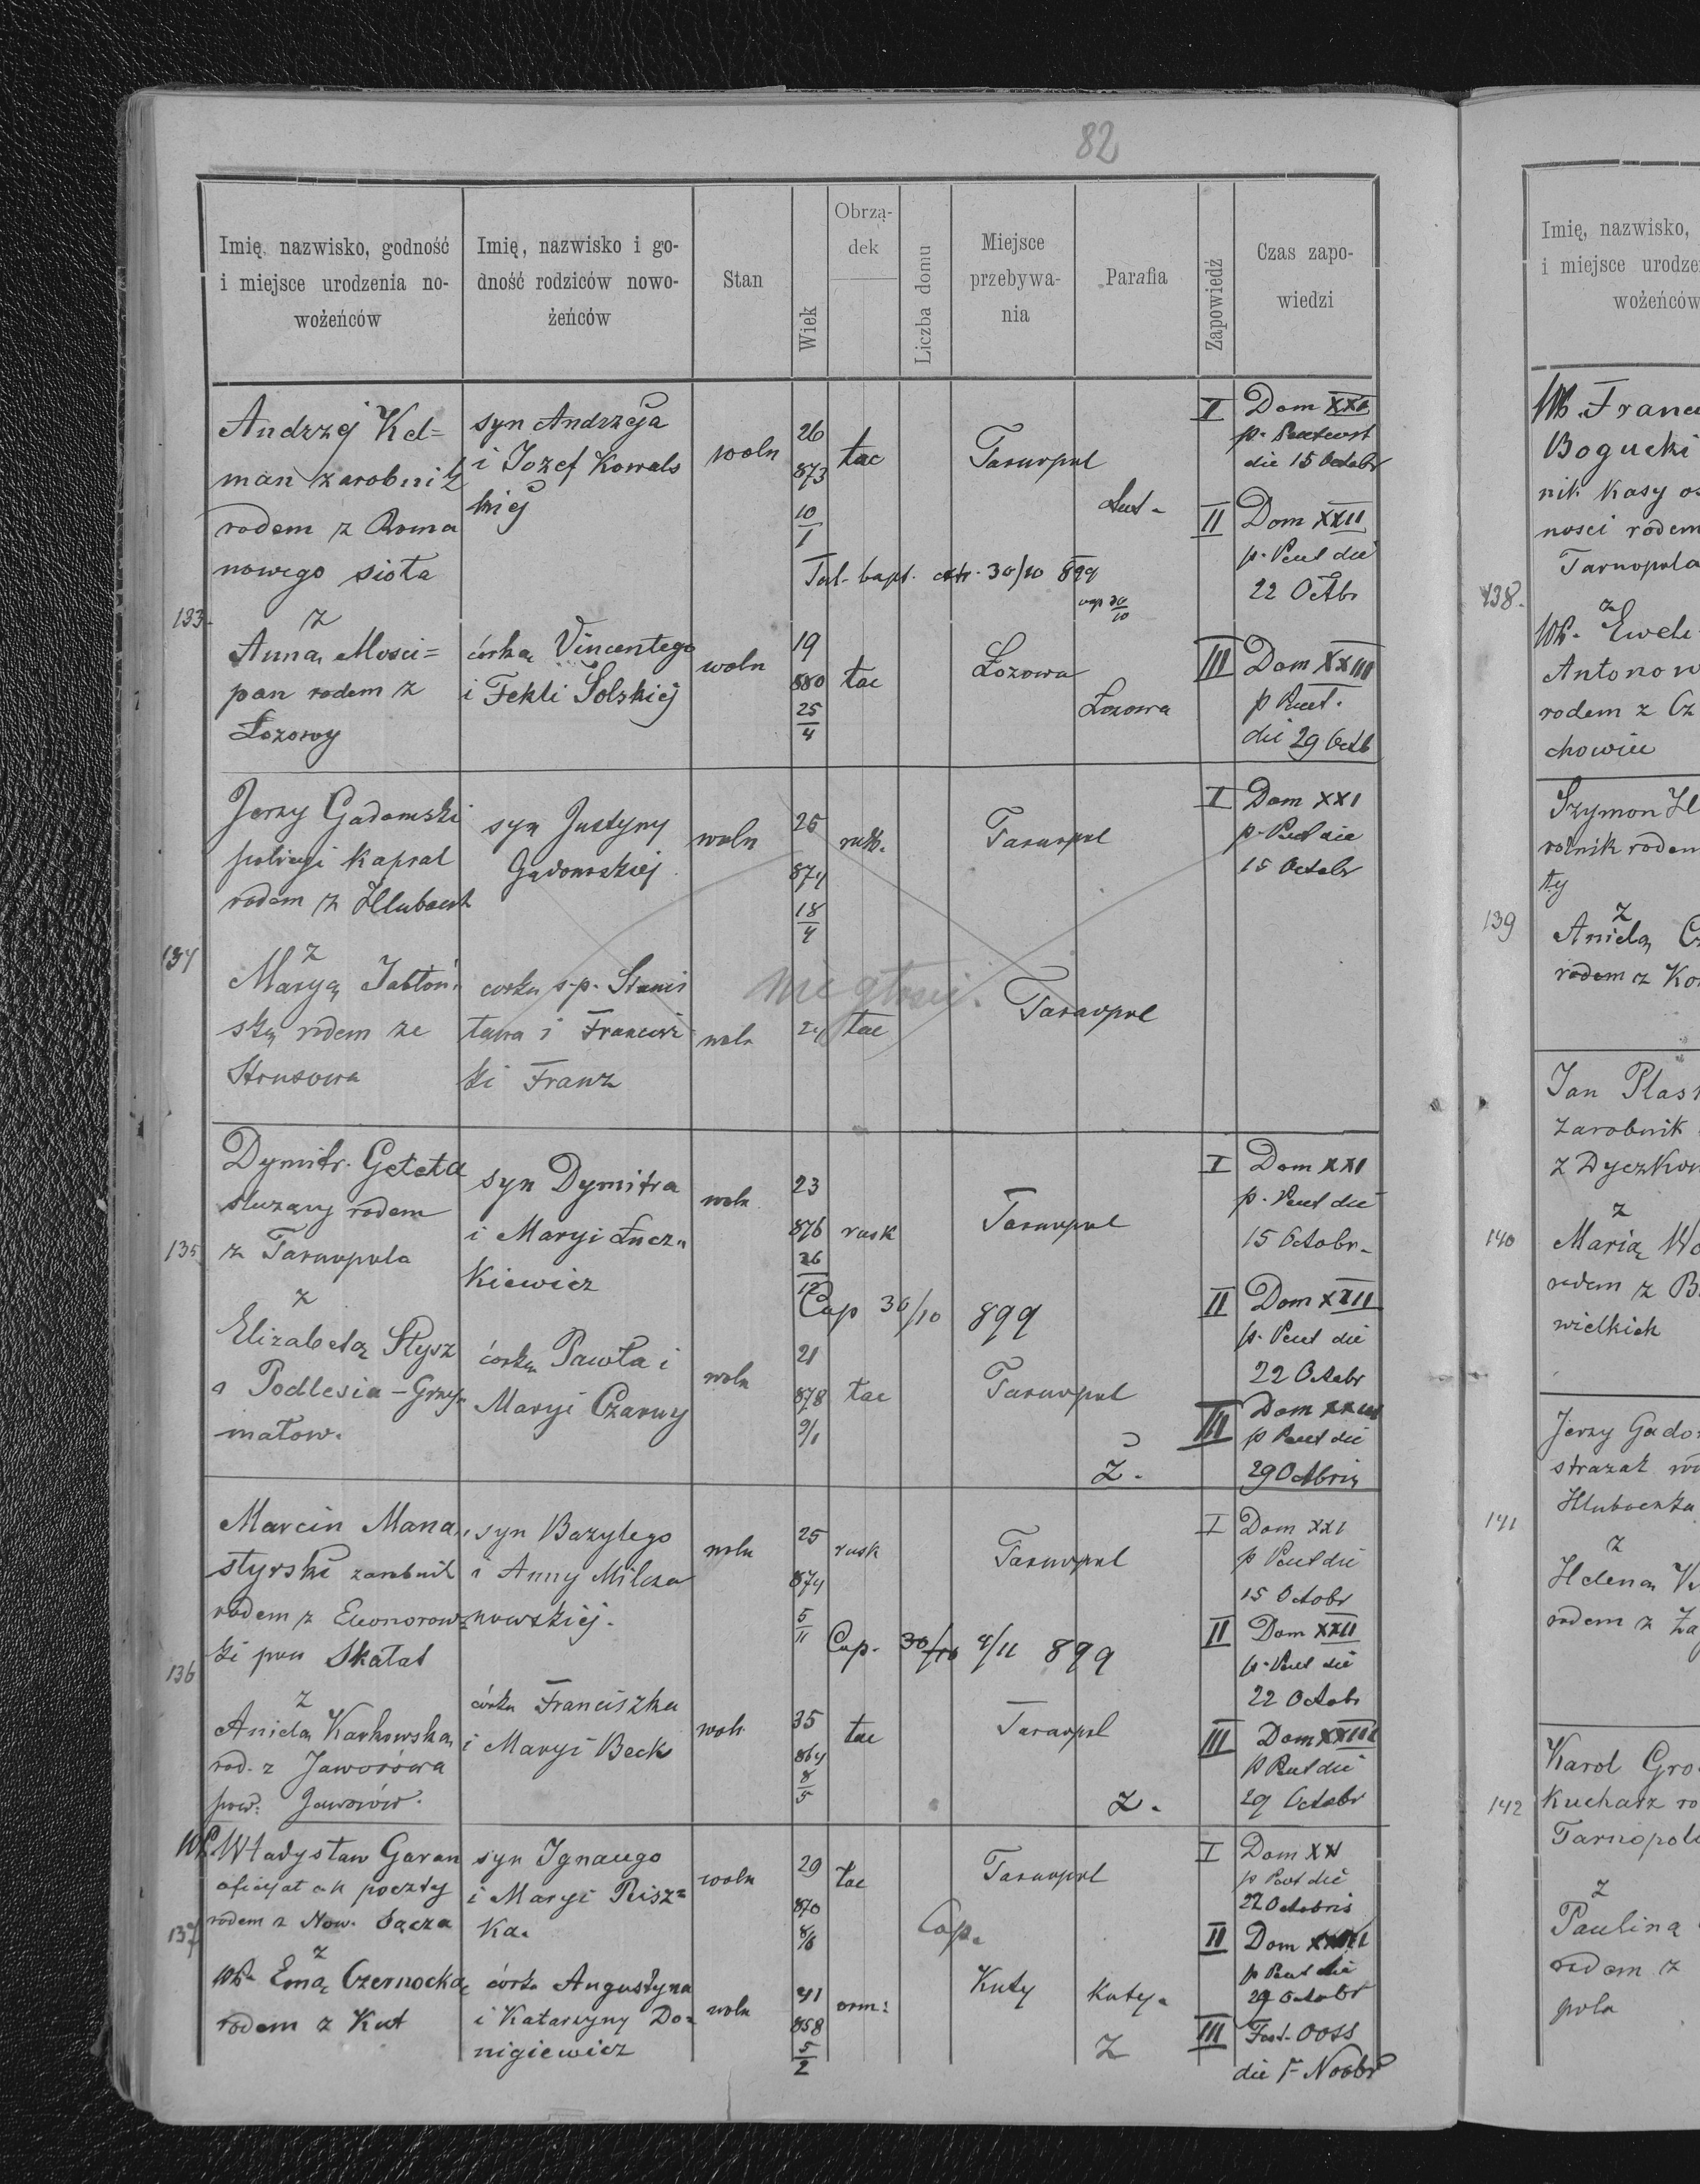 82
Imię, nazwisko, godność
i miejsce urodzenia no-
wożeńców
Imię, nazwisko i go-
dność rodziców nowo-
żeńców
Stan
Wiek
Obrzą-
dek
Liczba domu
Miejsce
przebywa-
nia
Parafia
Zapowiedź
Czas zapo-
wiedzi
133.
Andrzej Kel=
man zarobnik
rodem z Roma
nowego sioła
z
Anną Mosci=
pan rodem z
Łozowy
syn Andrzeja
i Jozef Kowals
kiej
córką Vincentego
i Fekli Solskiej
woln
26
873
10
1
łac
Tarnopol
30/10 899
woln
19
880
25
4
łac
Łozowa
Łozowa
I Dom XXI
die 15 Octobr
II Dom XXII
p. Pent die
22 Octbr
III Dom XXIII
p Pent.
die 29 Octb
134
Jerzy Gadomski
policyi kapral
rodem z Hluboczk
z
Maryą Jabłoń=
ską rodem ze
Strusowa
syn Justyny
Gadomskiej
corka s.p. Stanis
ława i Francisz
ki Franz
woln
25
874
18
4
rusk.
Tarnopol
nie głosić.
woln
łac
Tarnopol
I Dom XXI
p. Pent die
15 Octobr
135
Dymitr Geleta
służący rodem
z Tarnopola
z
Elizabetą Słysz
z Podlesia-Grzy=
małow.
syn Dymitra
i Maryi Łucz=
kiewicz
córka Pawła i
Maryi Czarny
woln
23
876
26
12
rusk
Tarnopol
Cop 30/10 899
woln
21
878
9/1
łac
Tarnopol
Z.
I Dom XXI
p. Pent die
15 Octobr.
II Dom XXII
p. Pent die
22 Octobr
III Dom XXIII
p Pent die
29 Octobris
136
Marcin Mana=
styrski zarobnik
rodem z Eleonorow=
ki pow Skałat
z
Anielą Karkowską
rod. z Jaworowa
pow. Jaworów.
syn Bazylego
i Anny Milcza
nowskiej.
córka Franciszka
i Maryi Beck
woln
25
874
5
11
rusk
Tarnopol
Cop. 30/10 4/11 899
woln
35
864
8
5
łac
Tarnopol
Z.
I Dom XXI
p Pent die
15 Octobr
II Dom XXII
p. Pent die
22 Octobr
III Dom XXIII
p Pent die
29 Octobr
137
WP. Władysław Garan
oficyał ck poczty
rodem z Now. Sącza
z
WP. Emą Czernocką
rodem z Kut
syn Ignacego
i Maryi Pisz=
ka.
córka Augustyna
i Katarzyny Do=
nigiewicz
woln
29
870
8/6
łac
Tarnopol
Cop.
woln
41
858
5
2
orm:
Kuty
Kuty.
Z
I Dom XXI
p Pent die
22 Octobris
II Dom XXIII
p Pent die
29 Octobr
III Fest. OOSS
die 1 Novbr
Imię, nazwisko,
i miejsce urodze
wożeńców
138.
WP. Franc
Bogucki
nik kasy os
nosci rodem
Tarnopola
z
WP. Ewel
Antonow
rodem z Cz
chowiec
139
Szymon H
rolnik rodem
ty
z
Anielą C
rodem z Ko
140
Jan Plas
zarobnik
z Dyczkow
z
Marią Wo
rodem z B
wielkich
141
Jerzy Gado
strażak ro
Hluboczka
z
Heleną
rodem z Za
142
Karol Gro
kucharz ro
Tarnopol
z
Pauliną
rodem z
pola